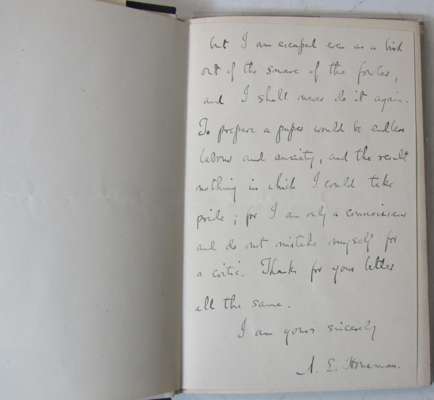 but I am escaped even as a bird
out of the snare of the fowler,
and I shall never do it again.
To prepare a paper would be endless
labour and anxiety, and the result
nothing in which I could take
pride; for I am only a connoisseur
and do not mistake myself for
a critic. Thanks for your letter
all the same.
I am yours sincerely
A. E. Housman.